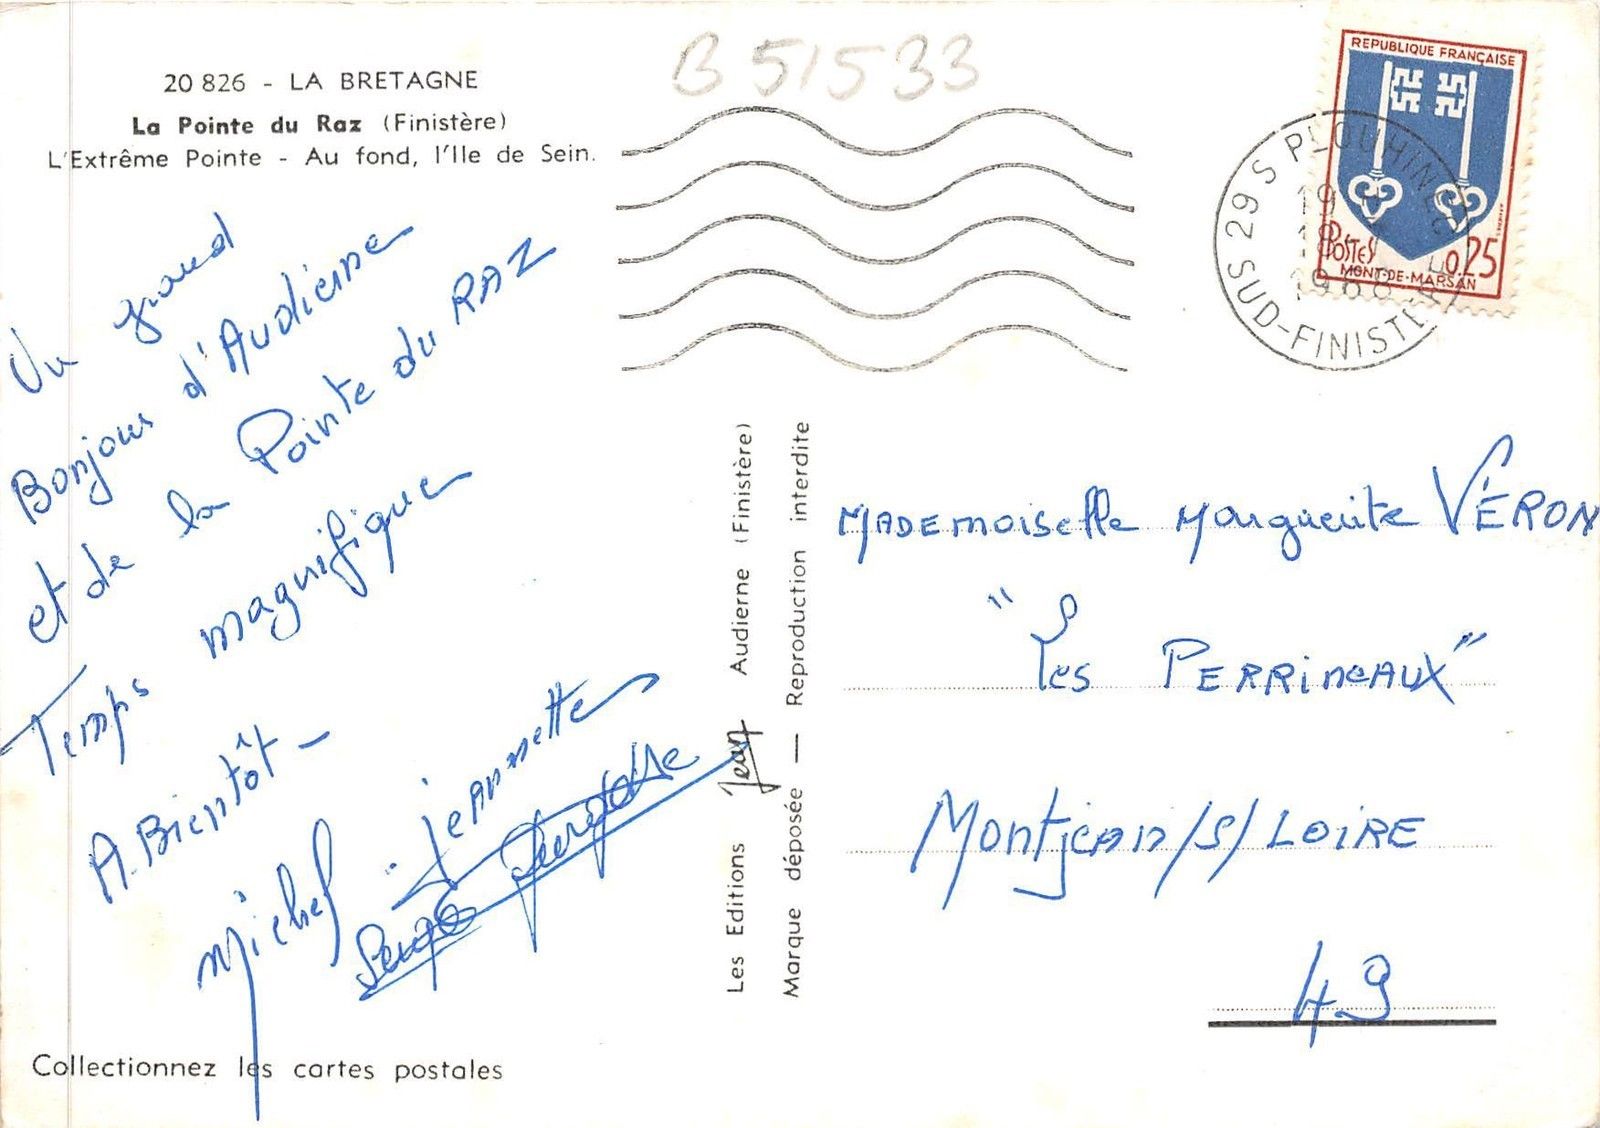 20 826 - LA BRETAGNE
La Pointe du Raz (Finistère)
L'Extrême Pointe - Au fond, l'Ile de Sein.
B 51533
REPUBLIQUE FRANÇAISE
POSTES 0,25
MONT-DE-MARSAN
29 S PLOUHINEC
19
18
1968
SUD-FINISTE
Un grand
Bonjour d'Audierne
et de la Pointe du RAZ
Temps magnifique
A. Bientôt -
Michel . Jeannette
Serge
Les Editions Jean Audierne (Finistère)
Marque déposée — Reproduction interdite
MADEmoiselle Marguerite VÉRON
"Les PERRINEAUX"
Montjean/s/LOIRE
49
Collectionnez les cartes postales